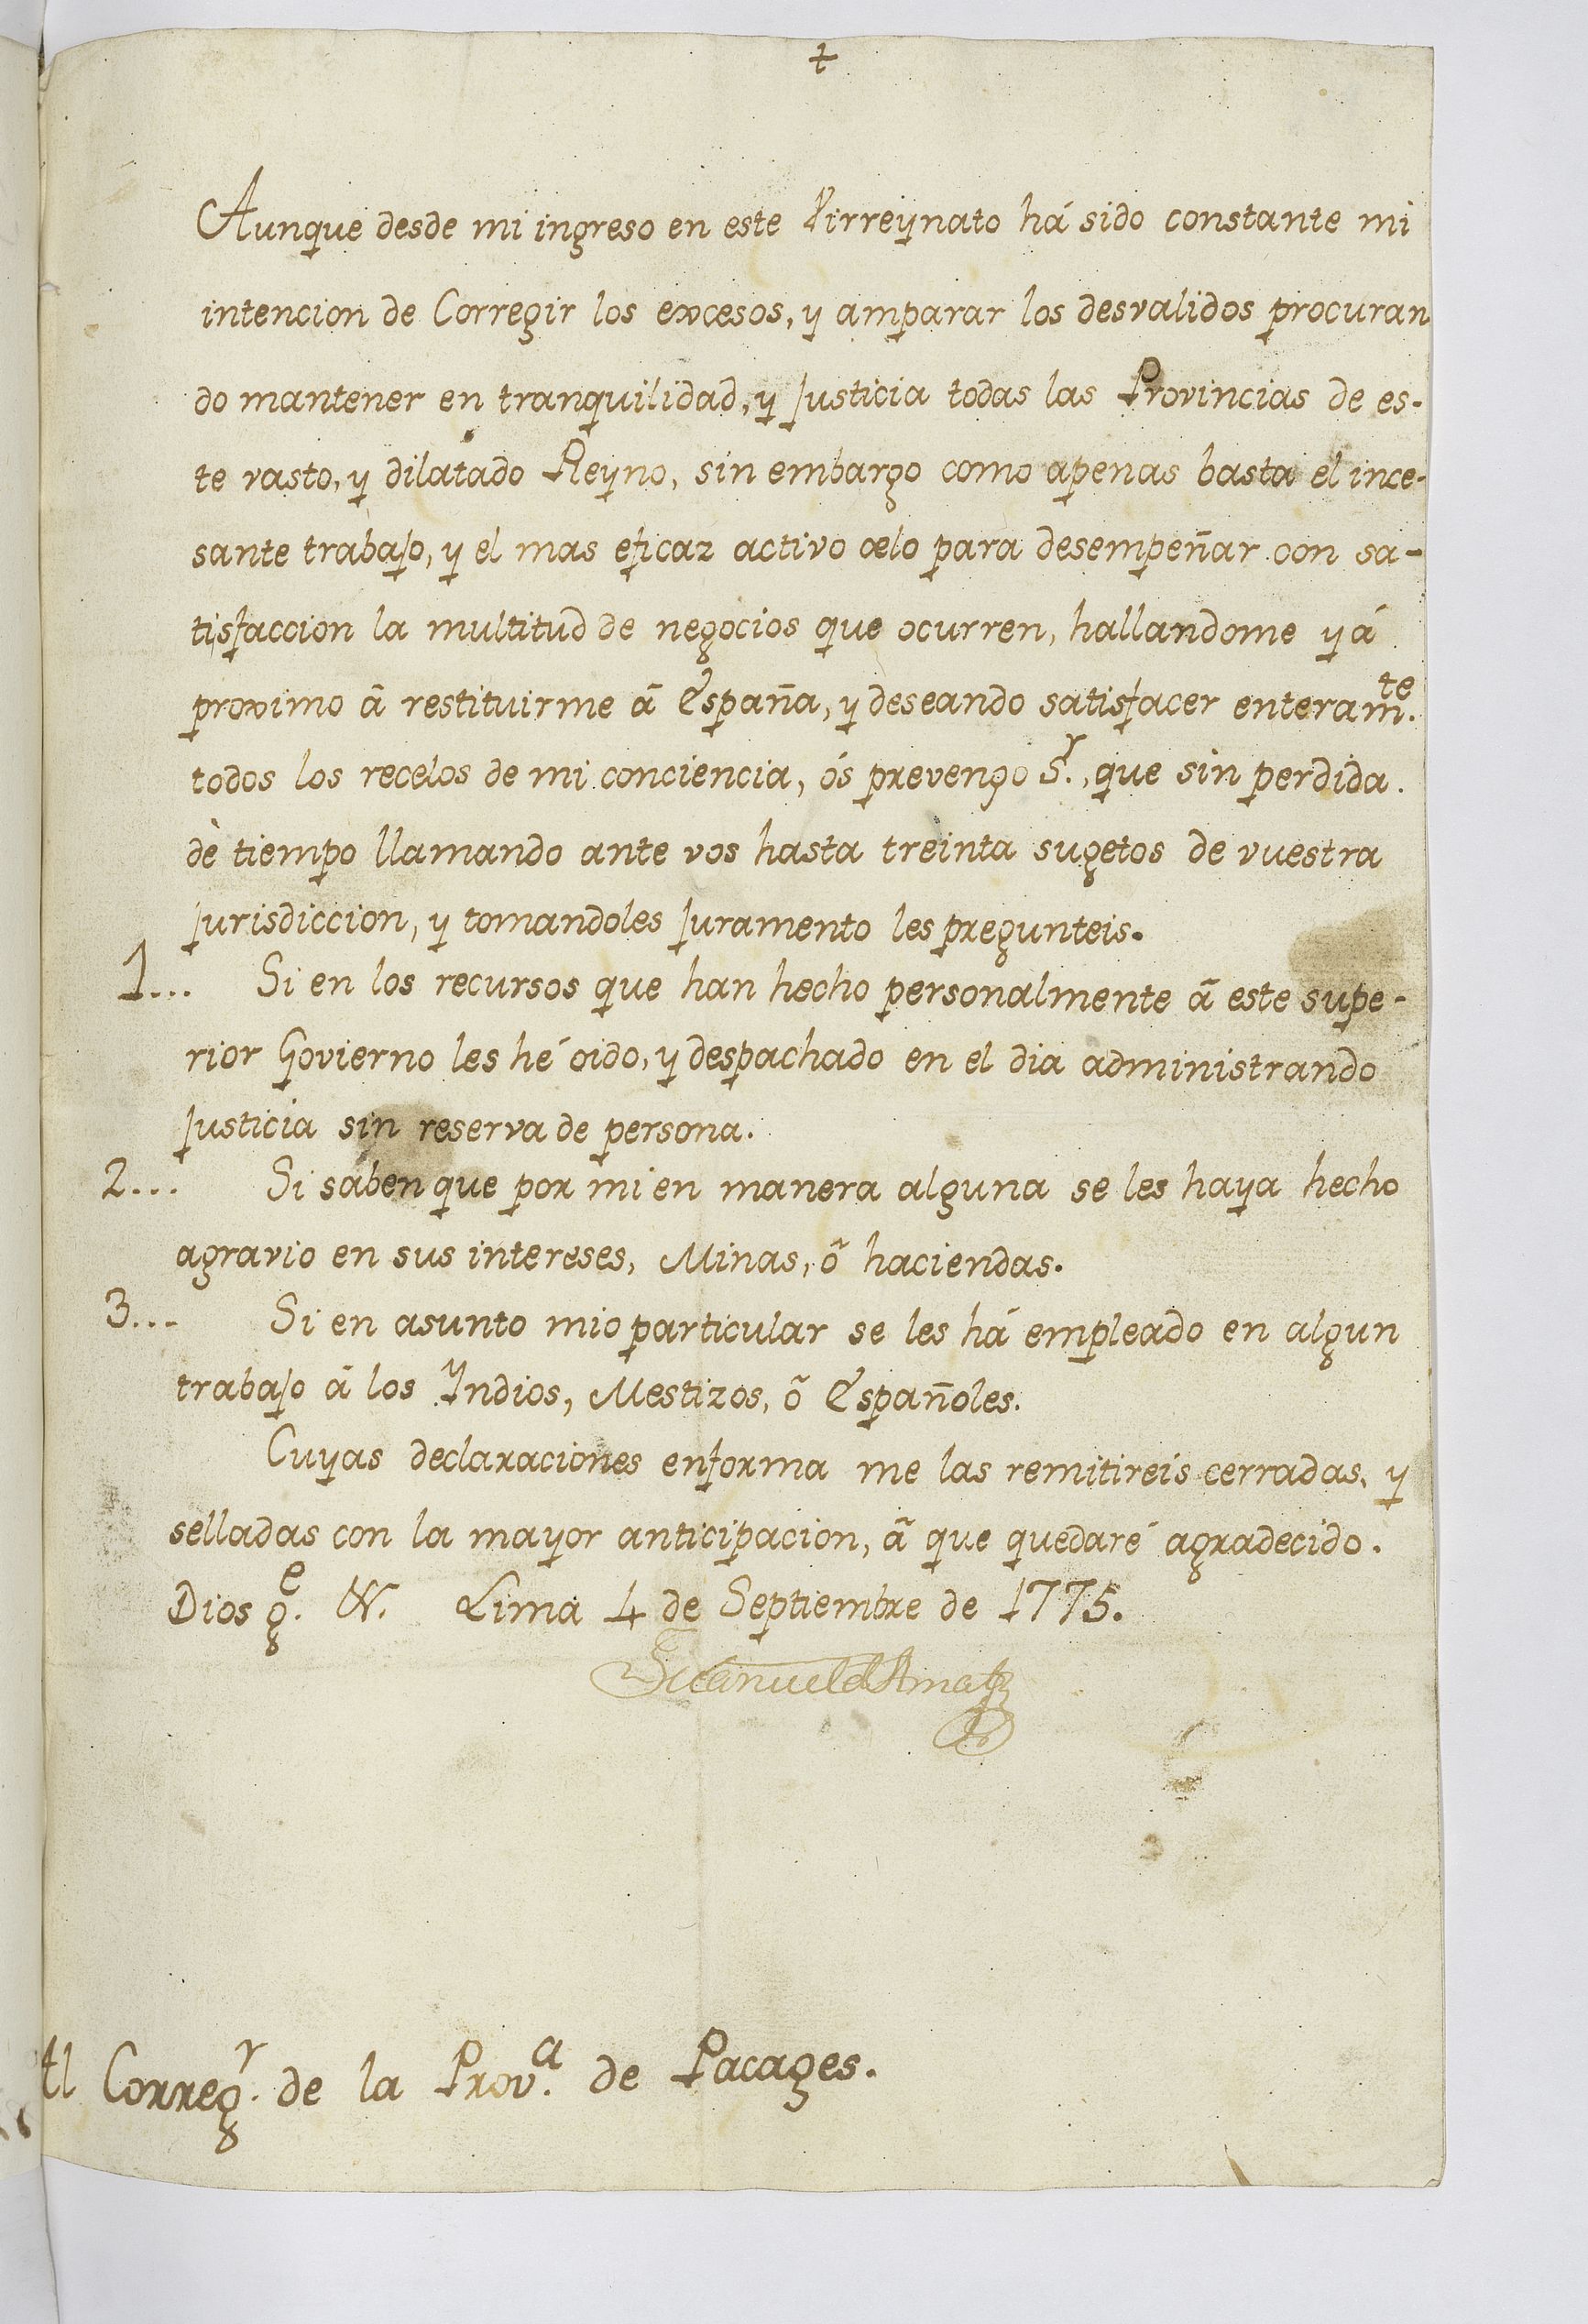 †
Aunque desde mi ingreso en este Virreynato há sido constante mi
intencion de Corregir los excesos, y amparar los desvalidos procuran
do mantener en tranquilidad, y justicia todas las Provincias de es-
te vasto, y dilatado Reyno, sin embargo como apenas basta el ince-
sante trabajo, y el mas eficaz activo celo para desempeñar con sa-
tisfaccion la multitud de negocios que ocurren, hallandome yá
proximo â restituirme â España, y deseando satisfacer enteram.te
todos los recelos de mi conciencia, ós prevengo S.r, que sin perdida
dè tiempo llamando ante vos hasta treinta sugetos de vuestra
jurisdiccion, y tomandoles juramento les pregunteis.
1... Si en los recursos que han hecho personalmente â este supe-
rior Govierno les hé oido, y despachado en el dia administrando
justicia sin reserva de persona.
2... Si saben que por mi en manera alguna se les haya hecho
agravio en sus intereses, Minas, ô haciendas.
3... Si en asunto mio particular se les há empleado en algun
trabajo â los Yndios, Mestizos, ô Españoles.
Cuyas declaraciones en forma me las remitireis cerradas, y
selladas con la mayor anticipacion, â que quedaré agradecido.
Dios g.e Lima 4 de Septiembre de 1775.
Manuel de Amat
Correg.r de la Prov.a de Pacages.